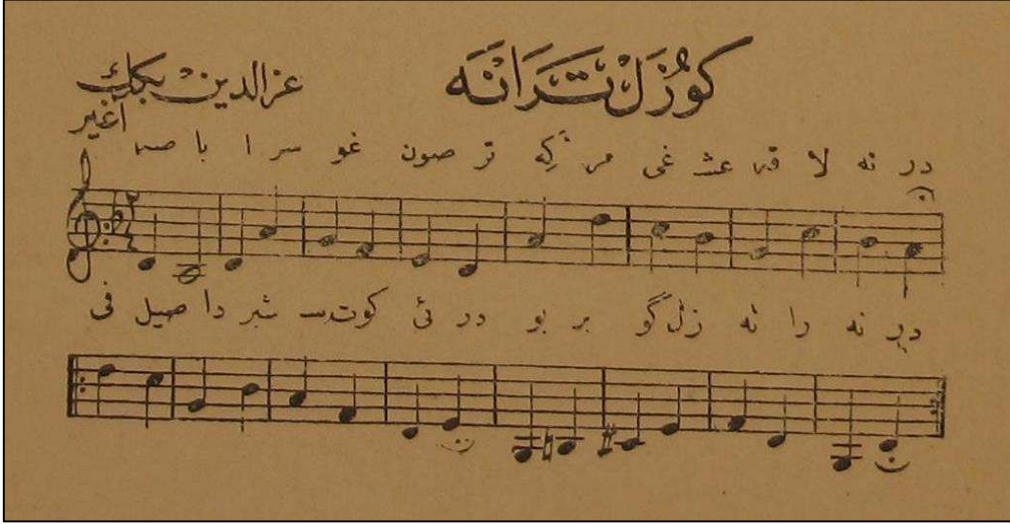 كُوزَلْ تَرَانَه
عزالدين بكك
آغير
در نه لا قه عشـ غى مر كه تر صون غو سر ا با صبـ
در نه را نه زل گو بر بو در ئ كوت سـ شبر دا صيل فى